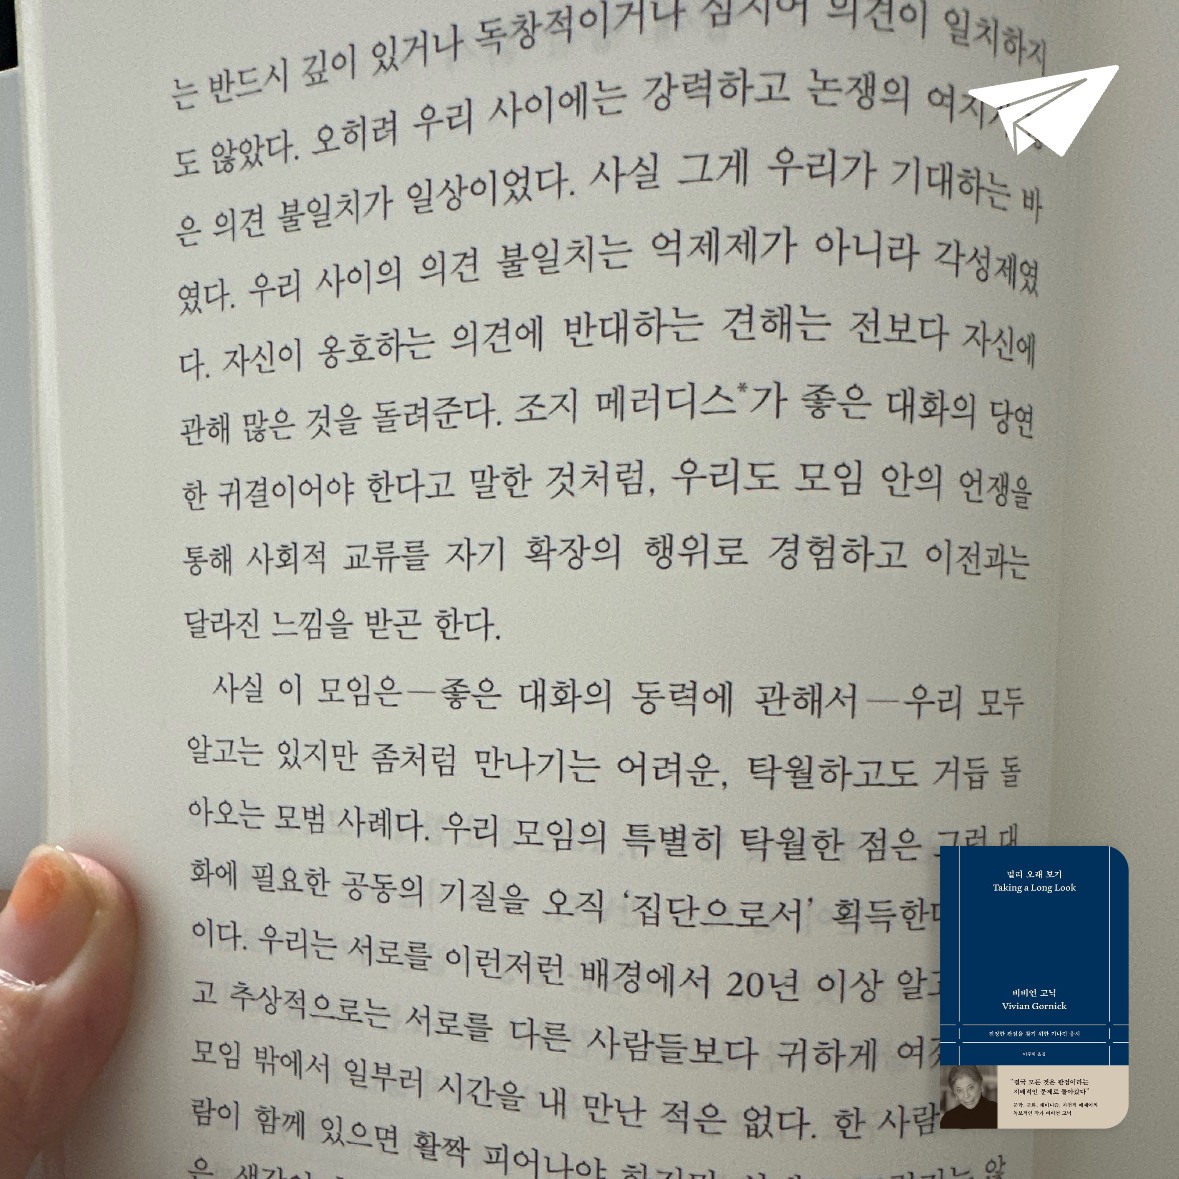 는 반드시 깊이 있거나 독창적이거나 심지어 의견이 일치하지
도 않았다. 오히려 우리 사이에는 강력하고 논쟁의
은 의견 불일치가 일상이었다. 사실 그게 우리가 기대하는 바
였다. 우리 사이의 의견 불일치는 억제제가 아니라 각성제였
다. 자신이 옹호하는 의견에 반대하는 견해는 전보다 자신에
관해 많은 것을 돌려준다. 조지 메러디스*가 좋은 대화의 당연
한 귀결이어야 한다고 말한 것처럼, 우리도 모임 안의 언쟁을
통해 사회적 교류를 자기 확장의 행위로 경험하고 이전과는
달라진 느낌을 받곤 한다.
사실 이 모임은—좋은 대화의 동력에 관해서—우리 모두
알고는 있지만 좀처럼 만나기는 어려운, 탁월하고도 거듭 돌
아오는 모범 사례다. 우리 모임의 특별히 탁월한 점은 그런 대
화에 필요한 공동의 기질을 오직 ‘집단으로서’
이다. 우리는 서로를 이런저런 배경에서 20년 이상
고 추상적으로는 서로를 다른 사람들보다 귀하게
모임 밖에서 일부러 시간을 내 만난 적은 없다. 한
람이 함께 있으면 활짝 피어나야
멀리 오래 보기
Taking a Long Look
비비언 고닉
Vivian Gornick
"결국 모든 것은 관점이라는
지배적인 문제로 돌아갔다"